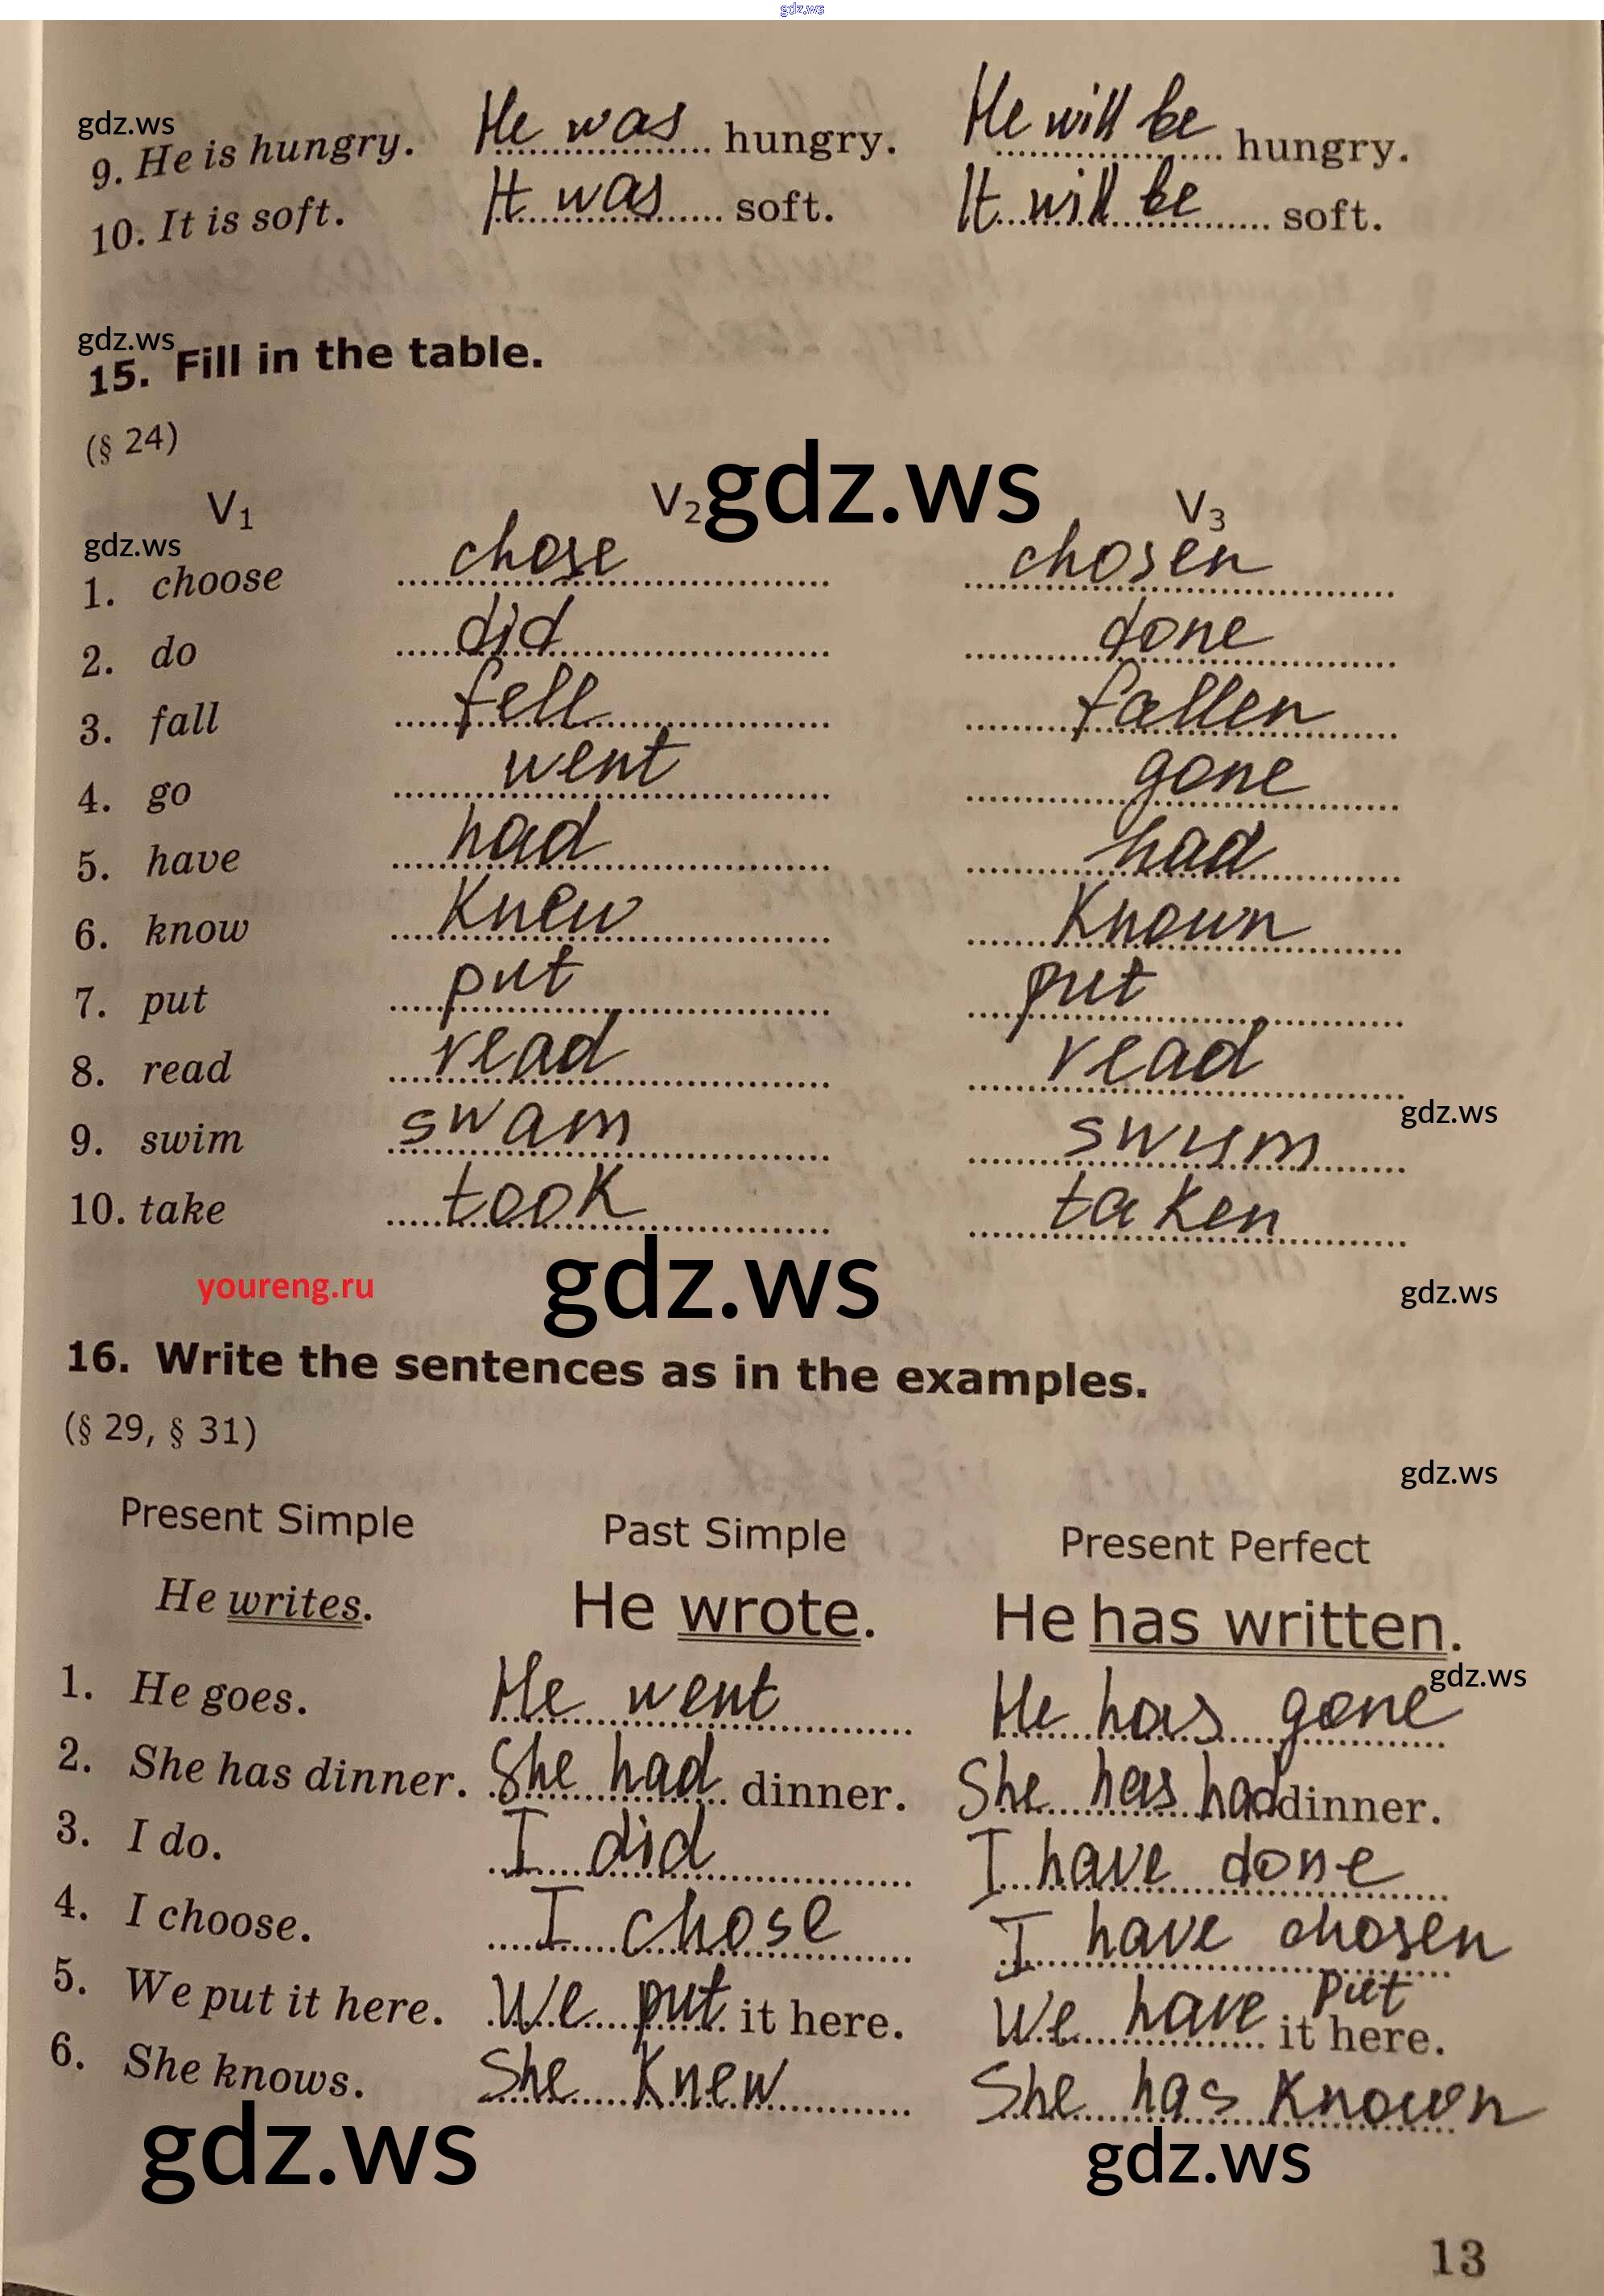 gdz.ws
gdz.ws
9. He is hungry. He was hungry. He will be hungry.
10. It is soft. It was soft. It will be soft.
gdz.ws
15. Fill in the table.
(§ 24)
V1 V2 gdz.ws V3
gdz.ws
1. choose chose chosen
2. do did done
3. fall fell fallen
4. go went gone
5. have had had
6. know knew known
7. put put put
8. read read read
gdz.ws
9. swim swam swum
10. take took taken
youreng.ru gdz.ws gdz.ws
16. Write the sentences as in the examples.
(§ 29, § 31)
gdz.ws
Present Simple Past Simple Present Perfect
He writes. He wrote. He has written.
gdz.ws
1. He goes. He went He has gone
2. She has dinner. She had dinner. She has had dinner.
3. I do. I did I have done
4. I choose. I chose I have chosen
5. We put it here. We put it here. We have put it here.
6. She knows. She knew She has known
gdz.ws gdz.ws
13